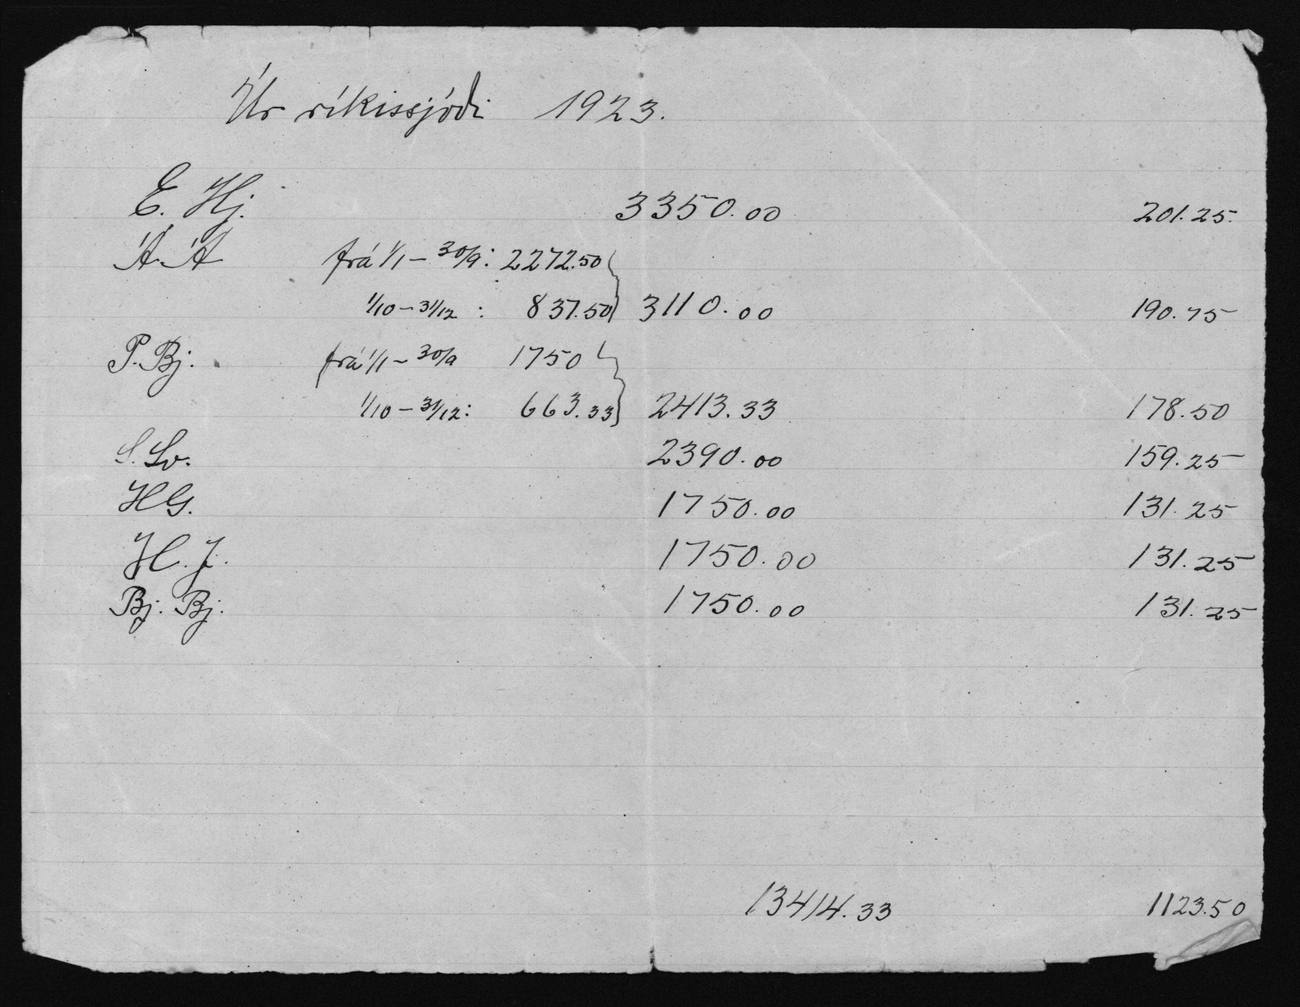 Úr ríkissjóði 1923.
E. Hj. 3350.00 201.25
Á. Á frá 1/1 – 30/9: 2272.50
1/10 – 31/12 : 837.50 3110.00 190.75
P. Bj. frá 1/1 – 30/9 1750
1/10 – 31/12: 663.33 2413.33 178.50
S. Sv. 2390.00 159.25
HG. 1750.00 131.25
H. J. 1750.00 131.25
Bj. Bj. 1750.00 131.25
13414.33 1123.50